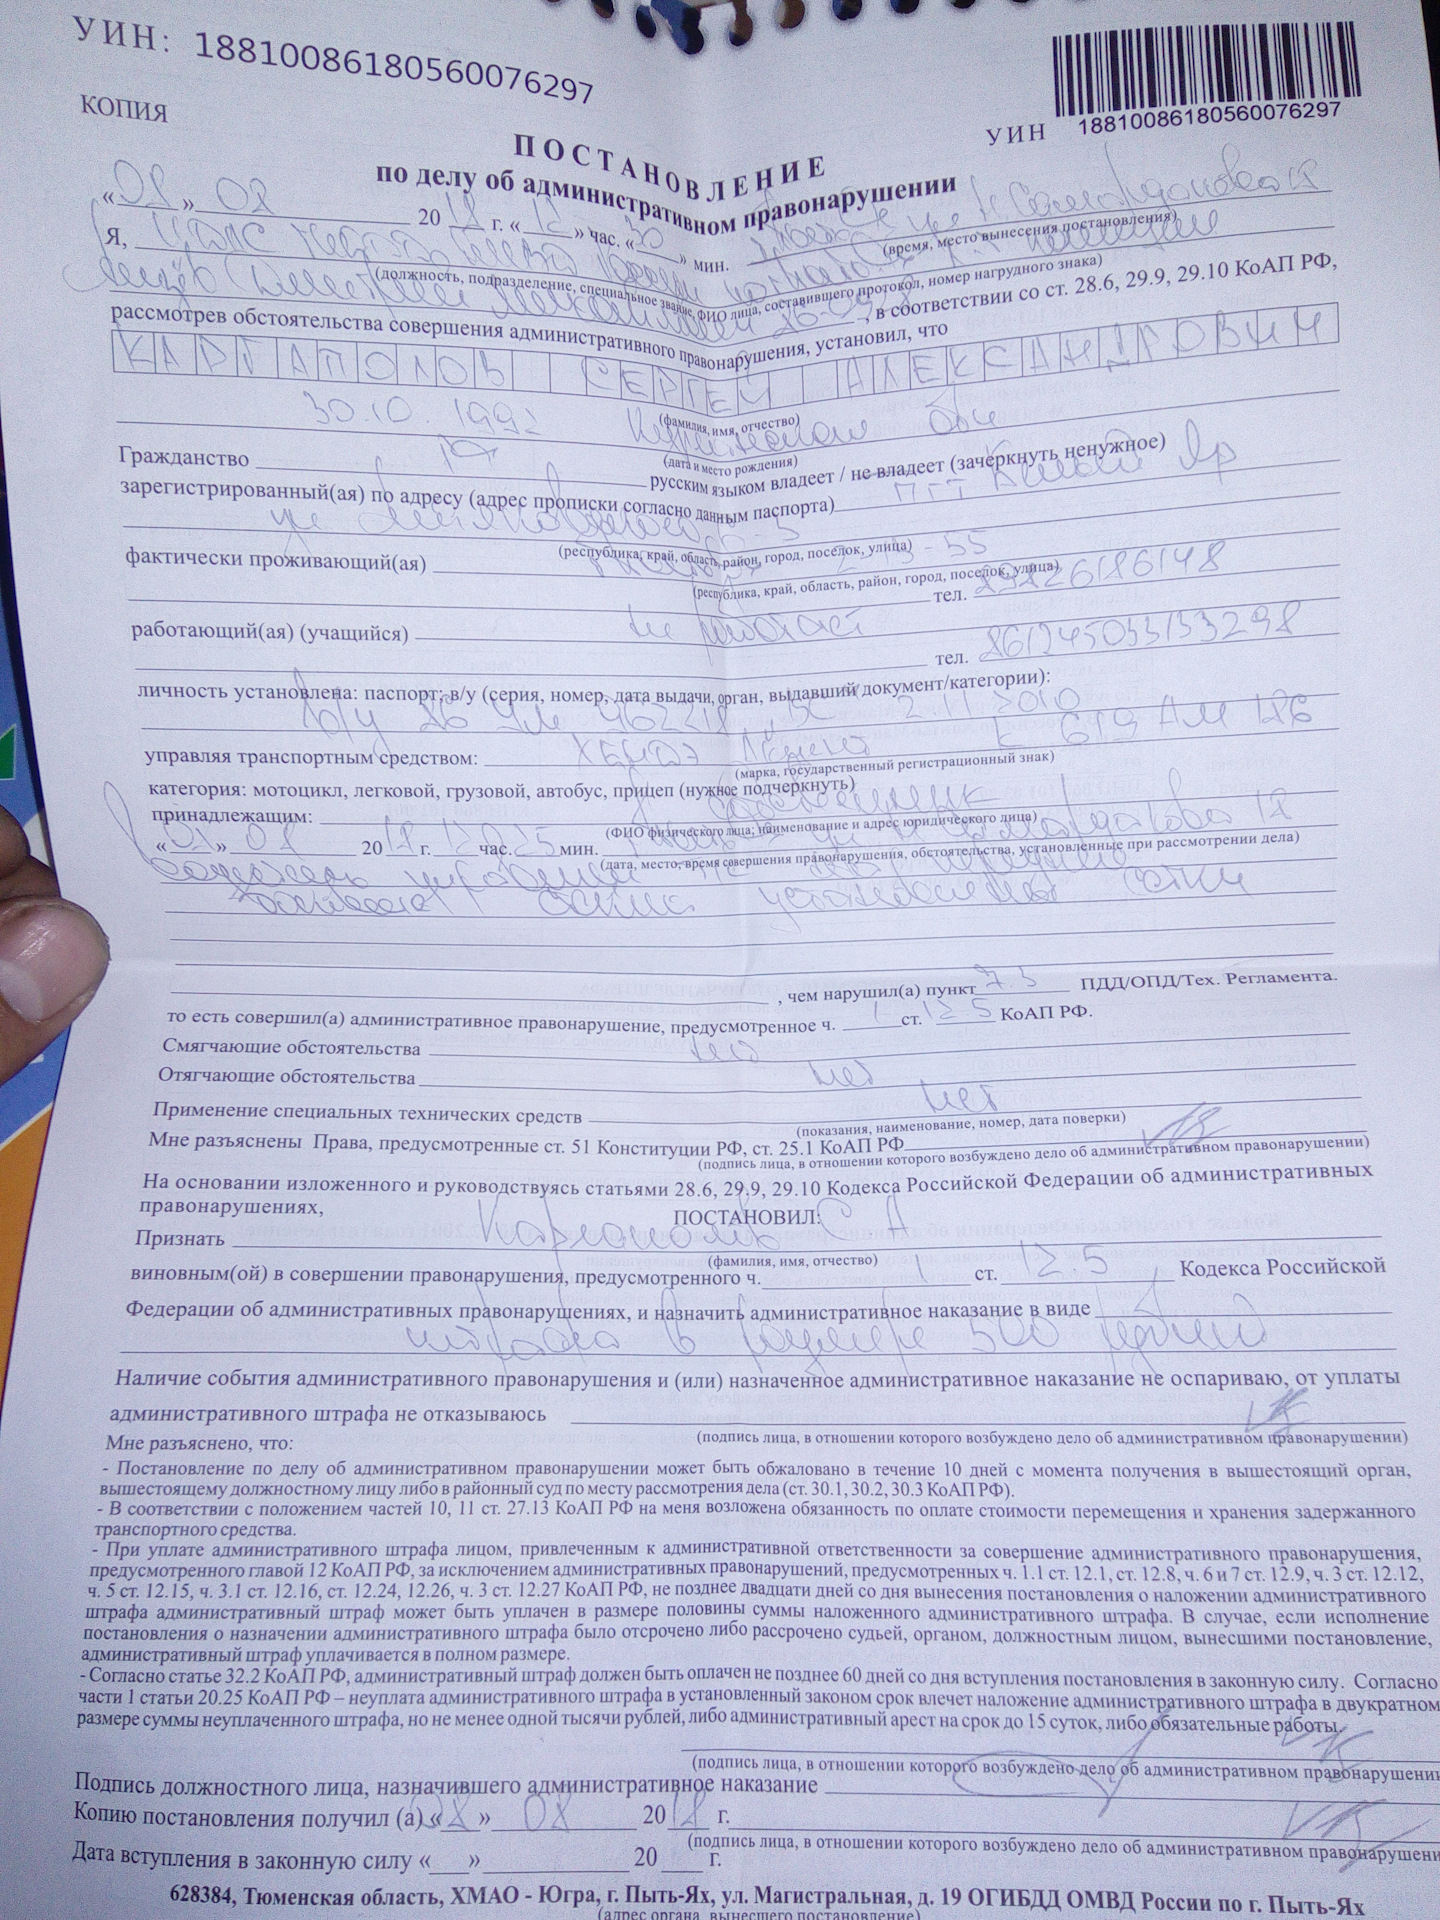 УИН: 18810086180560076297
УИН 18810086180560076297
КОПИЯ
ПОСТАНОВЛЕНИЕ
по делу об административном правонарушении
« » 08 20 18 г. «12» час. «30» мин.
(время, место вынесения постановления)
Я,
(должность, подразделение, специальное звание, ФИО лица, составившего протокол, номер нагрудного знака)
, в соответствии со ст. 28.6, 29.9, 29.10 КоАП РФ,
рассмотрев обстоятельства совершения административного правонарушения, установил, что
КАРГАПОЛОВ СЕРГЕЙ АЛЕКСАНДРОВИЧ
(фамилия, имя, отчество)
30.10.1992 обл
(дата и место рождения)
Гражданство РФ русским языком владеет / не владеет (зачеркнуть ненужное)
зарегистрированный(ая) по адресу (адрес прописки согласно данным паспорта) ПГТ Белый Яр
(республика, край, область, район, город, поселок, улица)
фактически проживающий(ая)
(республика, край, область, район, город, поселок, улица)
тел.
работающий(ая) (учащийся) не работает
тел.
личность установлена: паспорт; в/у (серия, номер, дата выдачи, орган, выдавший документ/категории):
в/у 2.11.2010
управляя транспортным средством: 619 АМ 186
(марка, государственный регистрационный знак)
категория: мотоцикл, легковой, грузовой, автобус, прицеп (нужное подчеркнуть)
принадлежащим: собственник
(ФИО физического лица; наименование и адрес юридического лица)
« » 08 20 18 г. 12 час. 25 мин.
(дата, место, время совершения правонарушения, обстоятельства, установленные при рассмотрении дела)
, чем нарушил(а) пункт 7.3 ПДД/ОПД/Тех. Регламента.
то есть совершил(а) административное правонарушение, предусмотренное ч. 1 ст. 12.5 КоАП РФ.
Смягчающие обстоятельства нет
Отягчающие обстоятельства нет
Применение специальных технических средств нет
(показания, наименование, номер, дата поверки)
Мне разъяснены Права, предусмотренные ст. 51 Конституции РФ, ст. 25.1 КоАП РФ
(подпись лица, в отношении которого возбуждено дело об административном правонарушении)
На основании изложенного и руководствуясь статьями 28.6, 29.9, 29.10 Кодекса Российской Федерации об административных
правонарушениях,
ПОСТАНОВИЛ:
Признать Каргаполов С А
(фамилия, имя, отчество)
виновным(ой) в совершении правонарушения, предусмотренного ч. 1 ст. 12.5 Кодекса Российской
Федерации об административных правонарушениях, и назначить административное наказание в виде
штрафа в размере 500 рублей
Наличие события административного правонарушения и (или) назначенное административное наказание не оспариваю, от уплаты
административного штрафа не отказываюсь
(подпись лица, в отношении которого возбуждено дело об административном правонарушении)
Мне разъяснено, что:
- Постановление по делу об административном правонарушении может быть обжаловано в течение 10 дней с момента получения в вышестоящий орган,
вышестоящему должностному лицу либо в районный суд по месту рассмотрения дела (ст. 30.1, 30.2, 30.3 КоАП РФ).
- В соответствии с положением частей 10, 11 ст. 27.13 КоАП РФ на меня возложена обязанность по оплате стоимости перемещения и хранения задержанного
транспортного средства.
- При уплате административного штрафа лицом, привлеченным к административной ответственности за совершение административного правонарушения,
предусмотренного главой 12 КоАП РФ, за исключением административных правонарушений, предусмотренных ч. 1.1 ст. 12.1, ст. 12.8, ч. 6 и 7 ст. 12.9, ч. 3 ст. 12.12,
ч. 5 ст. 12.15, ч. 3.1 ст. 12.16, ст. 12.24, 12.26, ч. 3 ст. 12.27 КоАП РФ, не позднее двадцати дней со дня вынесения постановления о наложении административного
штрафа административный штраф может быть уплачен в размере половины суммы наложенного административного штрафа. В случае, если исполнение
постановления о назначении административного штрафа было отсрочено либо рассрочено судьей, органом, должностным лицом, вынесшими постановление,
административный штраф уплачивается в полном размере.
- Согласно статье 32.2 КоАП РФ, административный штраф должен быть оплачен не позднее 60 дней со дня вступления постановления в законную силу. Согласно
части 1 статьи 20.25 КоАП РФ – неуплата административного штрафа в установленный законом срок влечет наложение административного штрафа в двукратном
размере суммы неуплаченного штрафа, но не менее одной тысячи рублей, либо административный арест на срок до 15 суток, либо обязательные работы.
(подпись лица, в отношении которого возбуждено дело об административном правонарушении
Подпись должностного лица, назначившего административное наказание
Копию постановления получил (а) « » 08 20 18 г.
(подпись лица, в отношении которого возбуждено дело об административном правонарушени
Дата вступления в законную силу « » 20 г.
628384, Тюменская область, ХМАО - Югра, г. Пыть-Ях, ул. Магистральная, д. 19 ОГИБДД ОМВД России по г. Пыть-Ях
(адрес органа, вынесшего постановление)